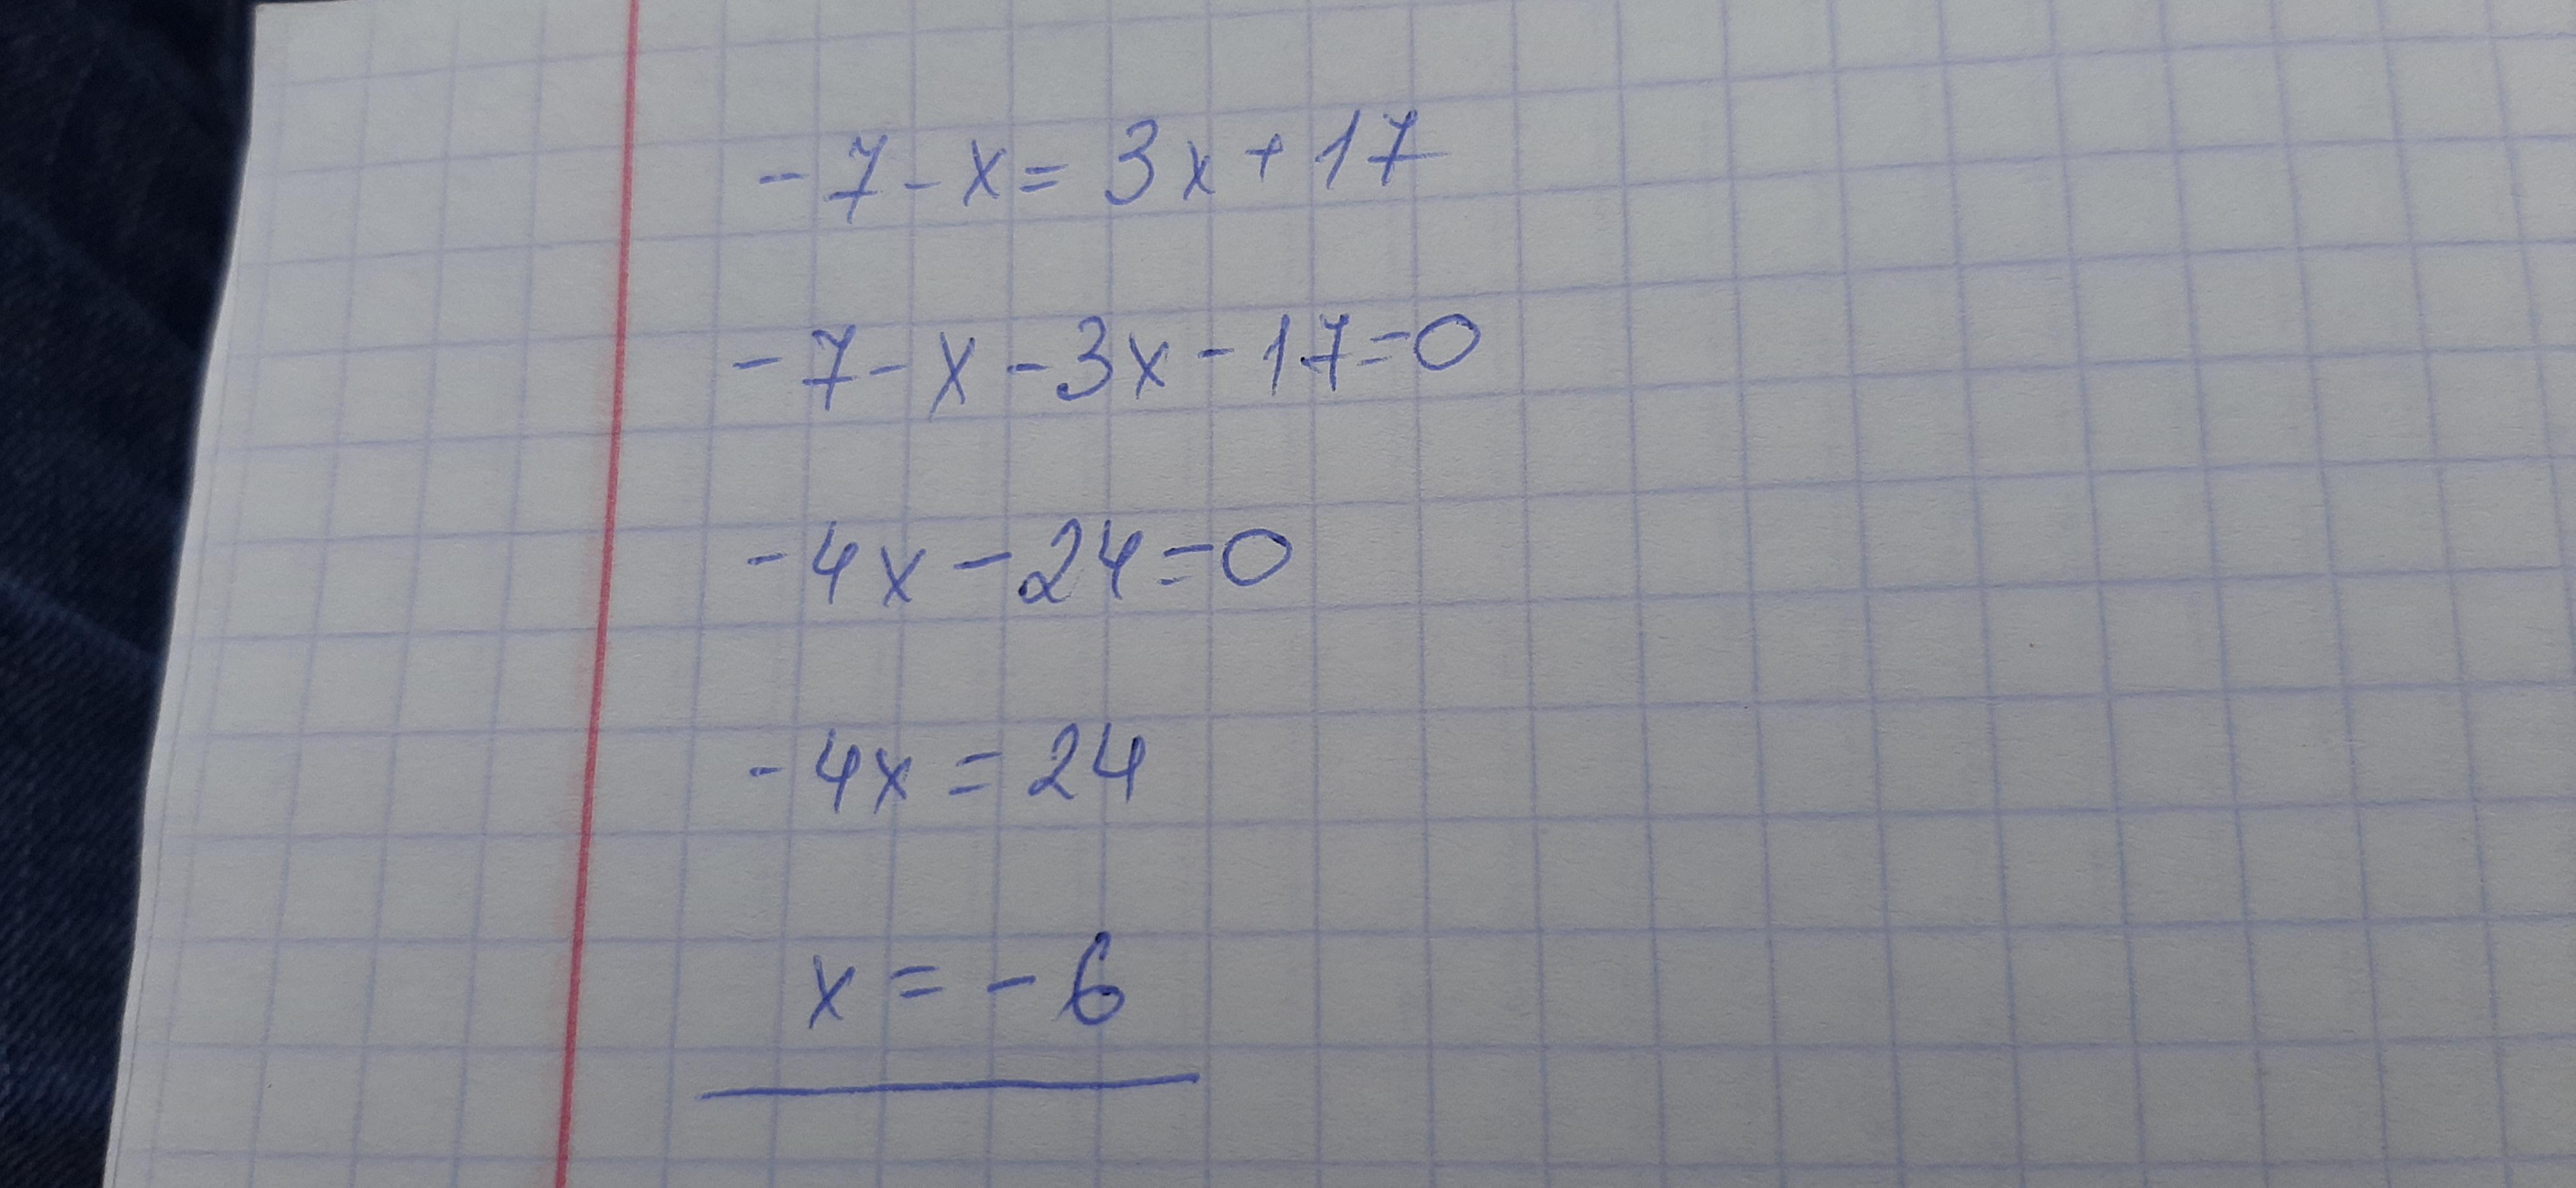 -7-x=3x+17
-7-x-3x-17=0
-4x-24=0
-4x=24
x=-6